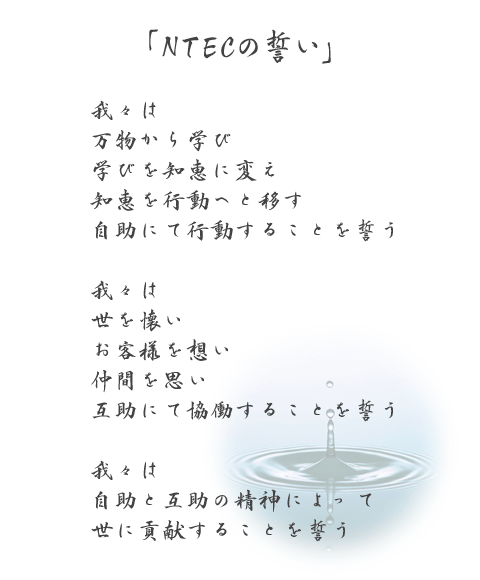 「NTECの誓い」
我々は
万物から学び
学びを知恵に変え
知恵を行動へと移す
自助にて行動することを誓う
我々は
世を懐い
お客様を想い
仲間を思い
互助にて協働することを誓う
我々は
自助と互助の精神によって
世に貢献することを誓う